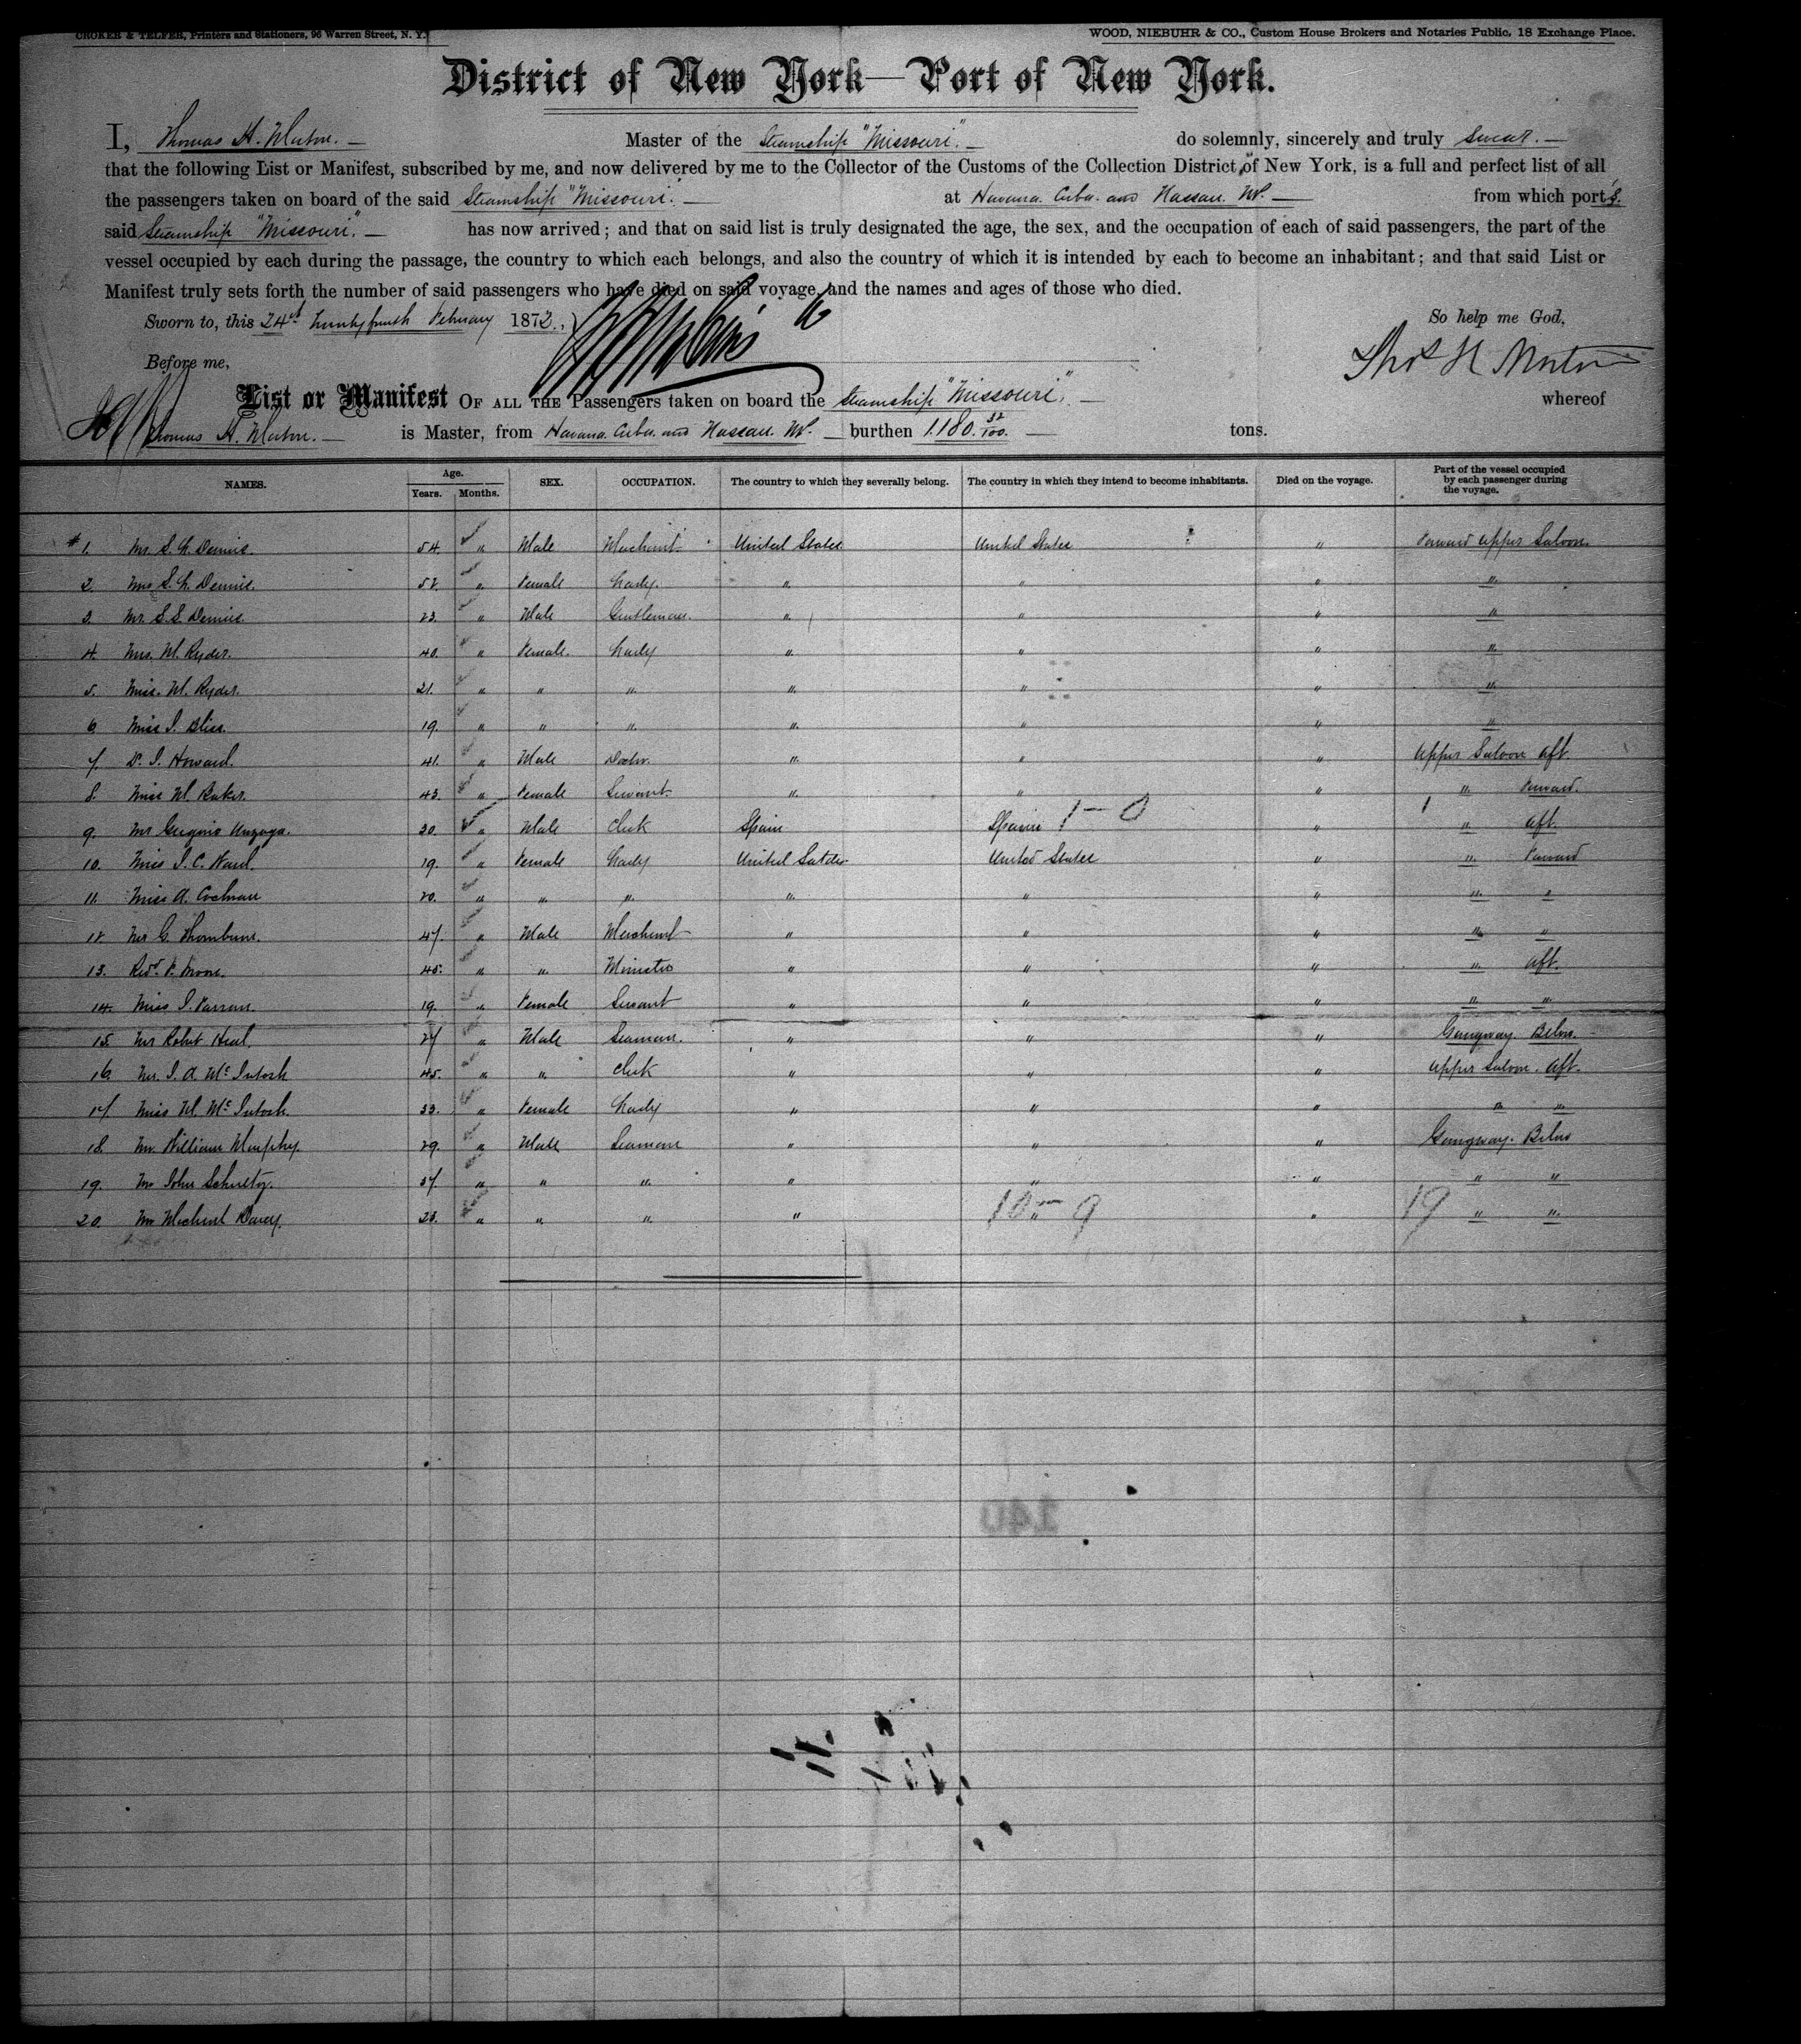 CROKER & TELFER, Printers and Stationers, 96 Warren Street, N. Y.
WOOD, NIEBUHR & CO., Custom House Brokers and Notaries Public, 18 Exchange Place.
District of New York—Port of New York.
I, Thomas H. Morton. — Master of the Steamship "Missouri". — do solemnly, sincerely and truly swear. —
that the following List or Manifest, subscribed by me, and now delivered by me to the Collector of the Customs of the Collection District of New York, is a full and perfect list of all
the passengers taken on board of the said Steamship "Missouri". — at Havana. Cuba. and Nassau. NP. — from which ports.
said Steamship "Missouri". — has now arrived; and that on said list is truly designated the age, the sex, and the occupation of each of said passengers, the part of the
vessel occupied by each during the passage, the country to which each belongs, and also the country of which it is intended by each to become an inhabitant; and that said List or
Manifest truly sets forth the number of said passengers who have died on said voyage, and the names and ages of those who died.
Sworn to, this 24th twenty fourth February 1873.,
So help me God,
Before me,
Thos H Morton
List or Manifest OF ALL THE Passengers taken on board the Steamship "Missouri". — whereof
Thomas H. Morton. — is Master, from Havana. Cuba. and Nassau. NP. — burthen 1.180. 32/100. — tons.
NAMES. Age. Years. Months. SEX. OCCUPATION. The country to which they severally belong. The country in which they intend to become inhabitants. Died on the voyage. Part of the vessel occupied by each passenger during the voyage.
# 1. Mr. S. L. Dennis. 54. " Male Merchant United States United States " Forward upper Saloon.
2. Mrs S. L. Dennis. 52. " Female Lady. " " " "
3. Mr. S. S. Dennis 23. " Male Gentleman. " " " "
4. Mrs. M. Ryder. 40. " Female. Lady " " " "
5. Miss. M. Ryder. 21. " " " " " " "
6. Miss I. Bliss. 19. " " " " " " "
7. Dr. I. Howard. 41. " Male Doctor. " " " Upper Saloon aft.
8. Miss M. Baker. 43. " Female Servant. " " " " Forward.
9. Mr Unzaga. 30. " Male Clerk Spain Spain 1 — 0 " 1 " aft.
10. Miss I. C. 19. " Female Lady United States United States " " Forward
11. Miss A. Cochran 20. " " " " " " " "
12. Mr G. Thornburn. 47. " Male Merchant " " " " "
13. Revd. Moore. 45. " " Minister " " " " aft.
14. Miss I. Farran. 19. " Female Servant " " " " "
15 Mr Robert 27 " Male Seaman. " " " Gangway. Below.
16. Mr. I. A. McIntosh 45. " " Clerk " " " Upper Saloon. aft.
17. Miss M. McIntosh 33. " Female Lady " " " " "
18. Mr. William Murphy. 29. " Male Seaman " " " Gangway. Below
19. Mr John Schultz. 37. " " " " " " " "
20. Mr Michael Davey. 23. " " " " 10 — 9 " " 19 " "
140